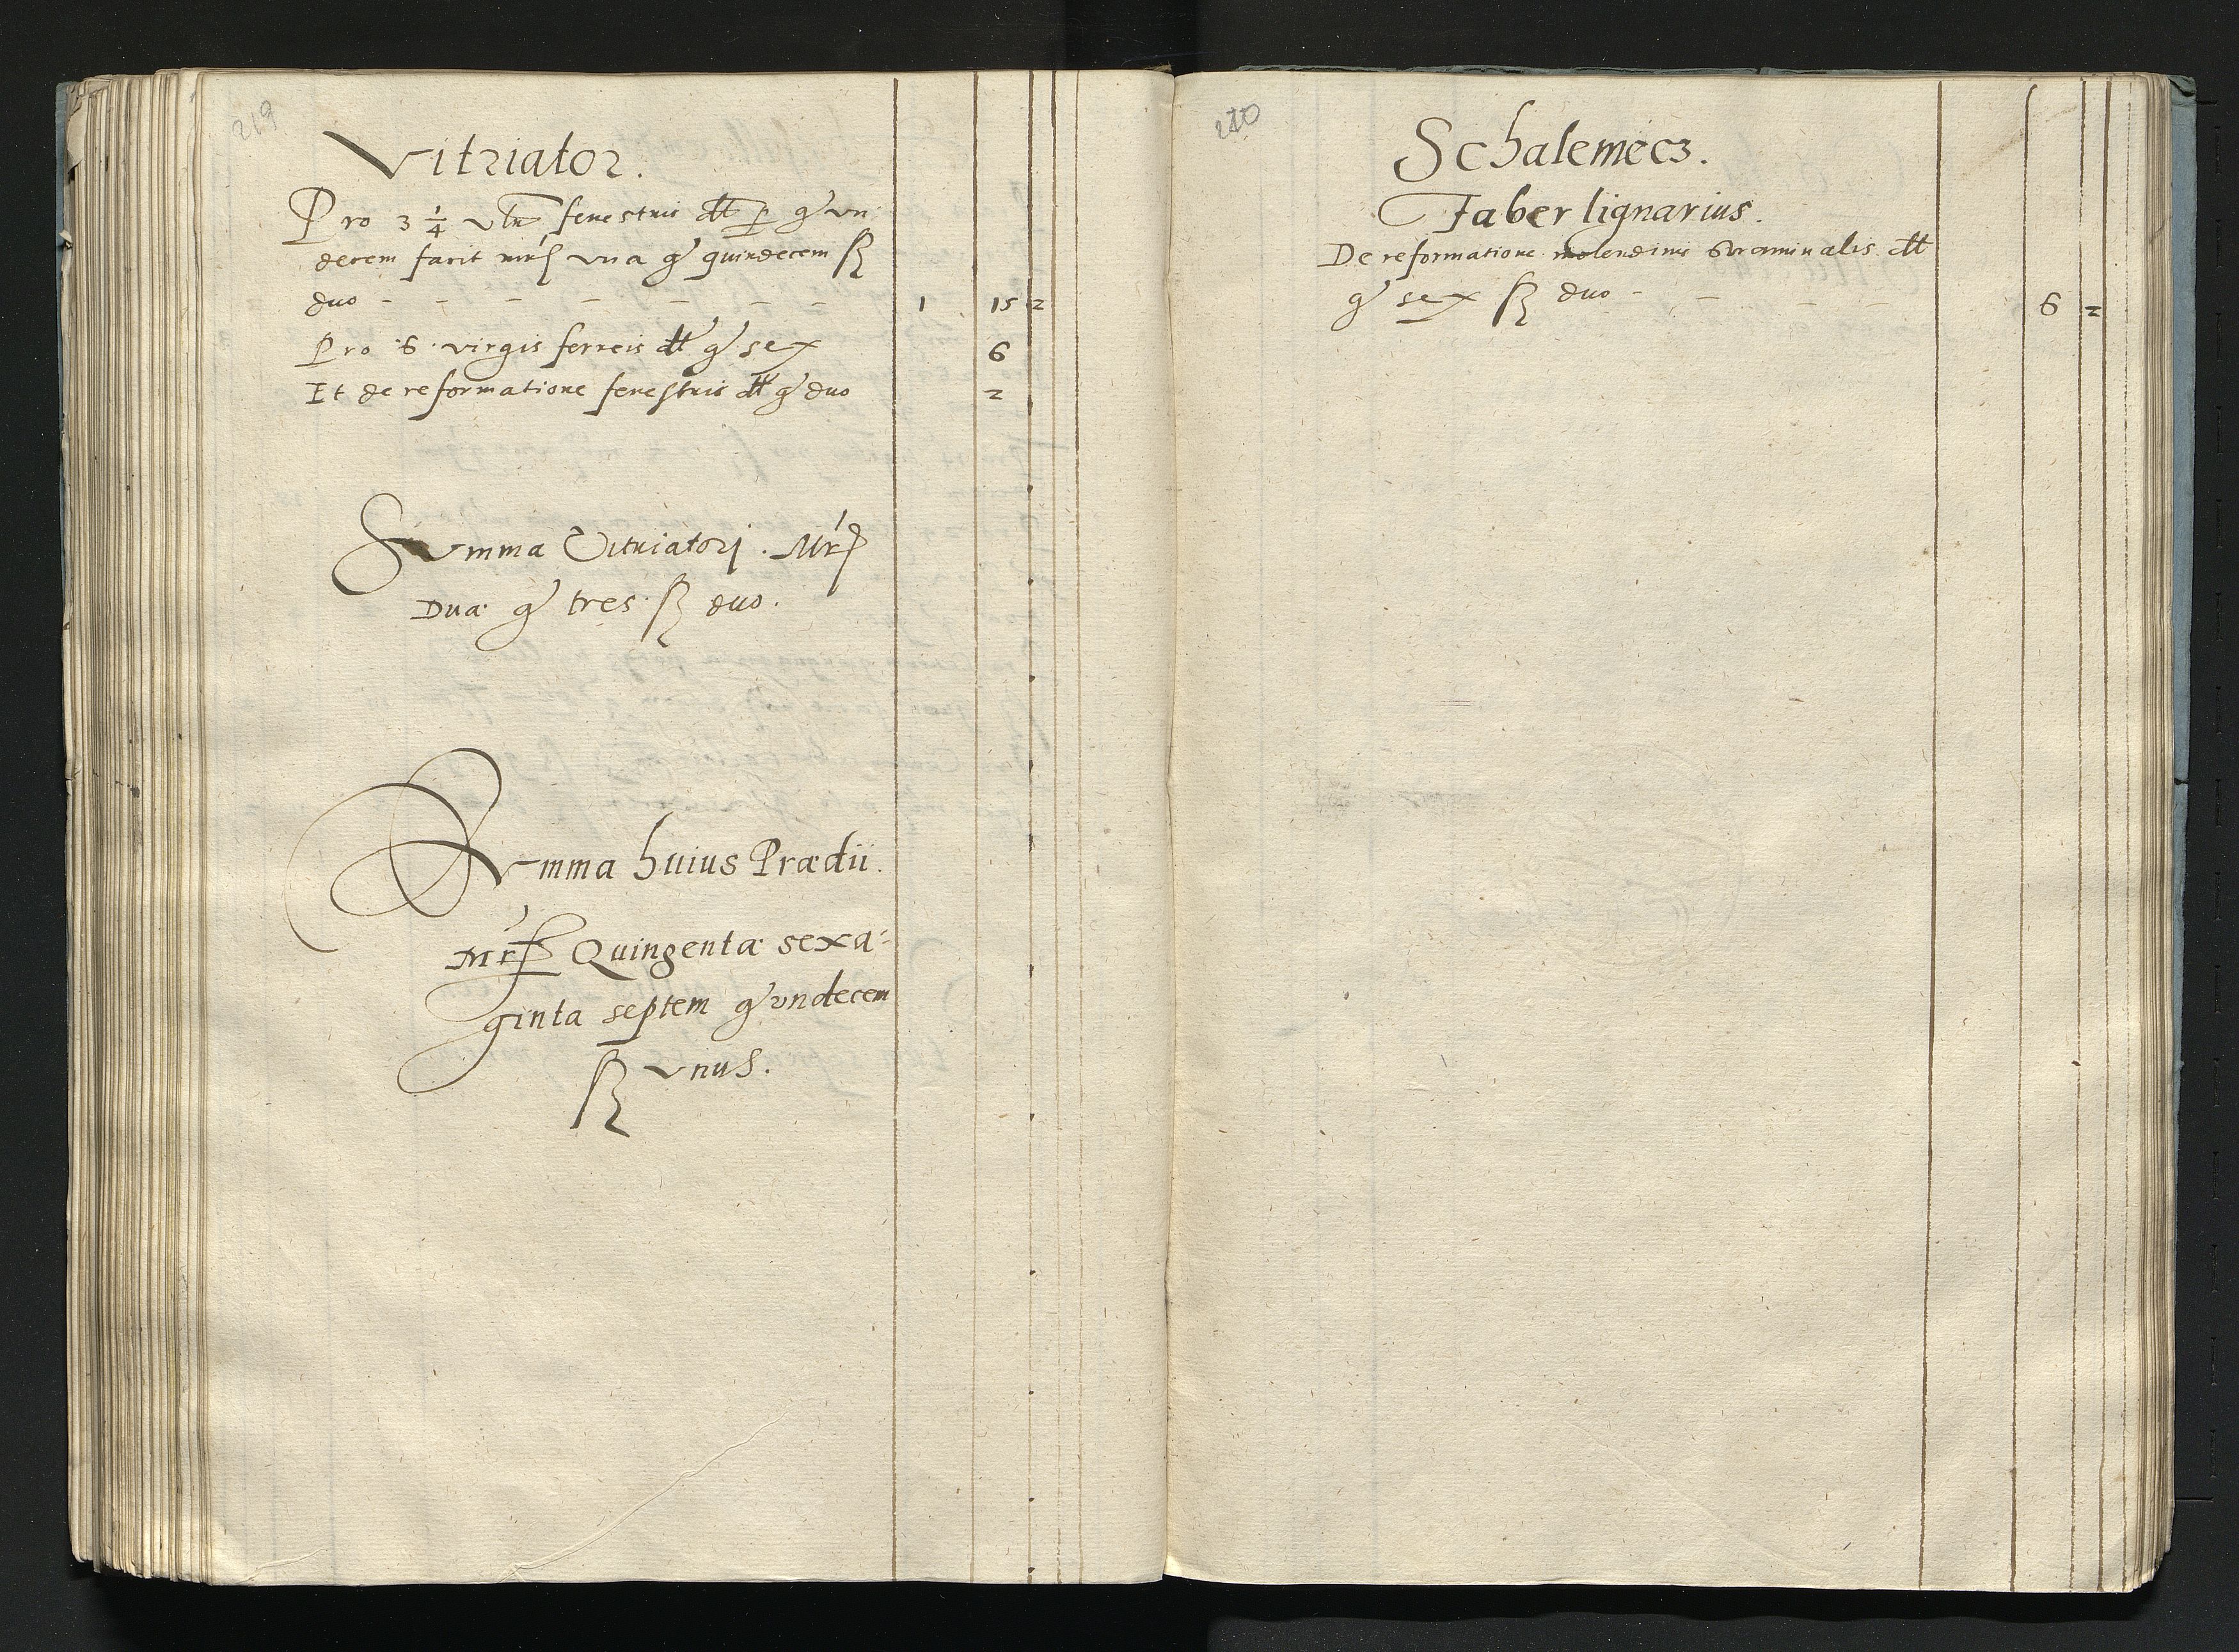 219
Vitriator.
Pro 3 1/4 vln fenestris dt p g vn
decem facit mrc vna g quindecem ß
duo - - - - - - - 1 15 2
Pro 6 virgis ferreis dt g sex 6
Et de reformatione fenestris dt g duo 2
Summa Vitriatorj. Mrc
Duæ g tres ß duo.
Summa huius Prædii.
Mrc Quingentæ sexa-
ginta septem g vndecem
ß vnus.
220
Schalemecz.
Faber lignarius.
De reformatione molendini straminalis dt
g sex ß duo - - - - 6 2